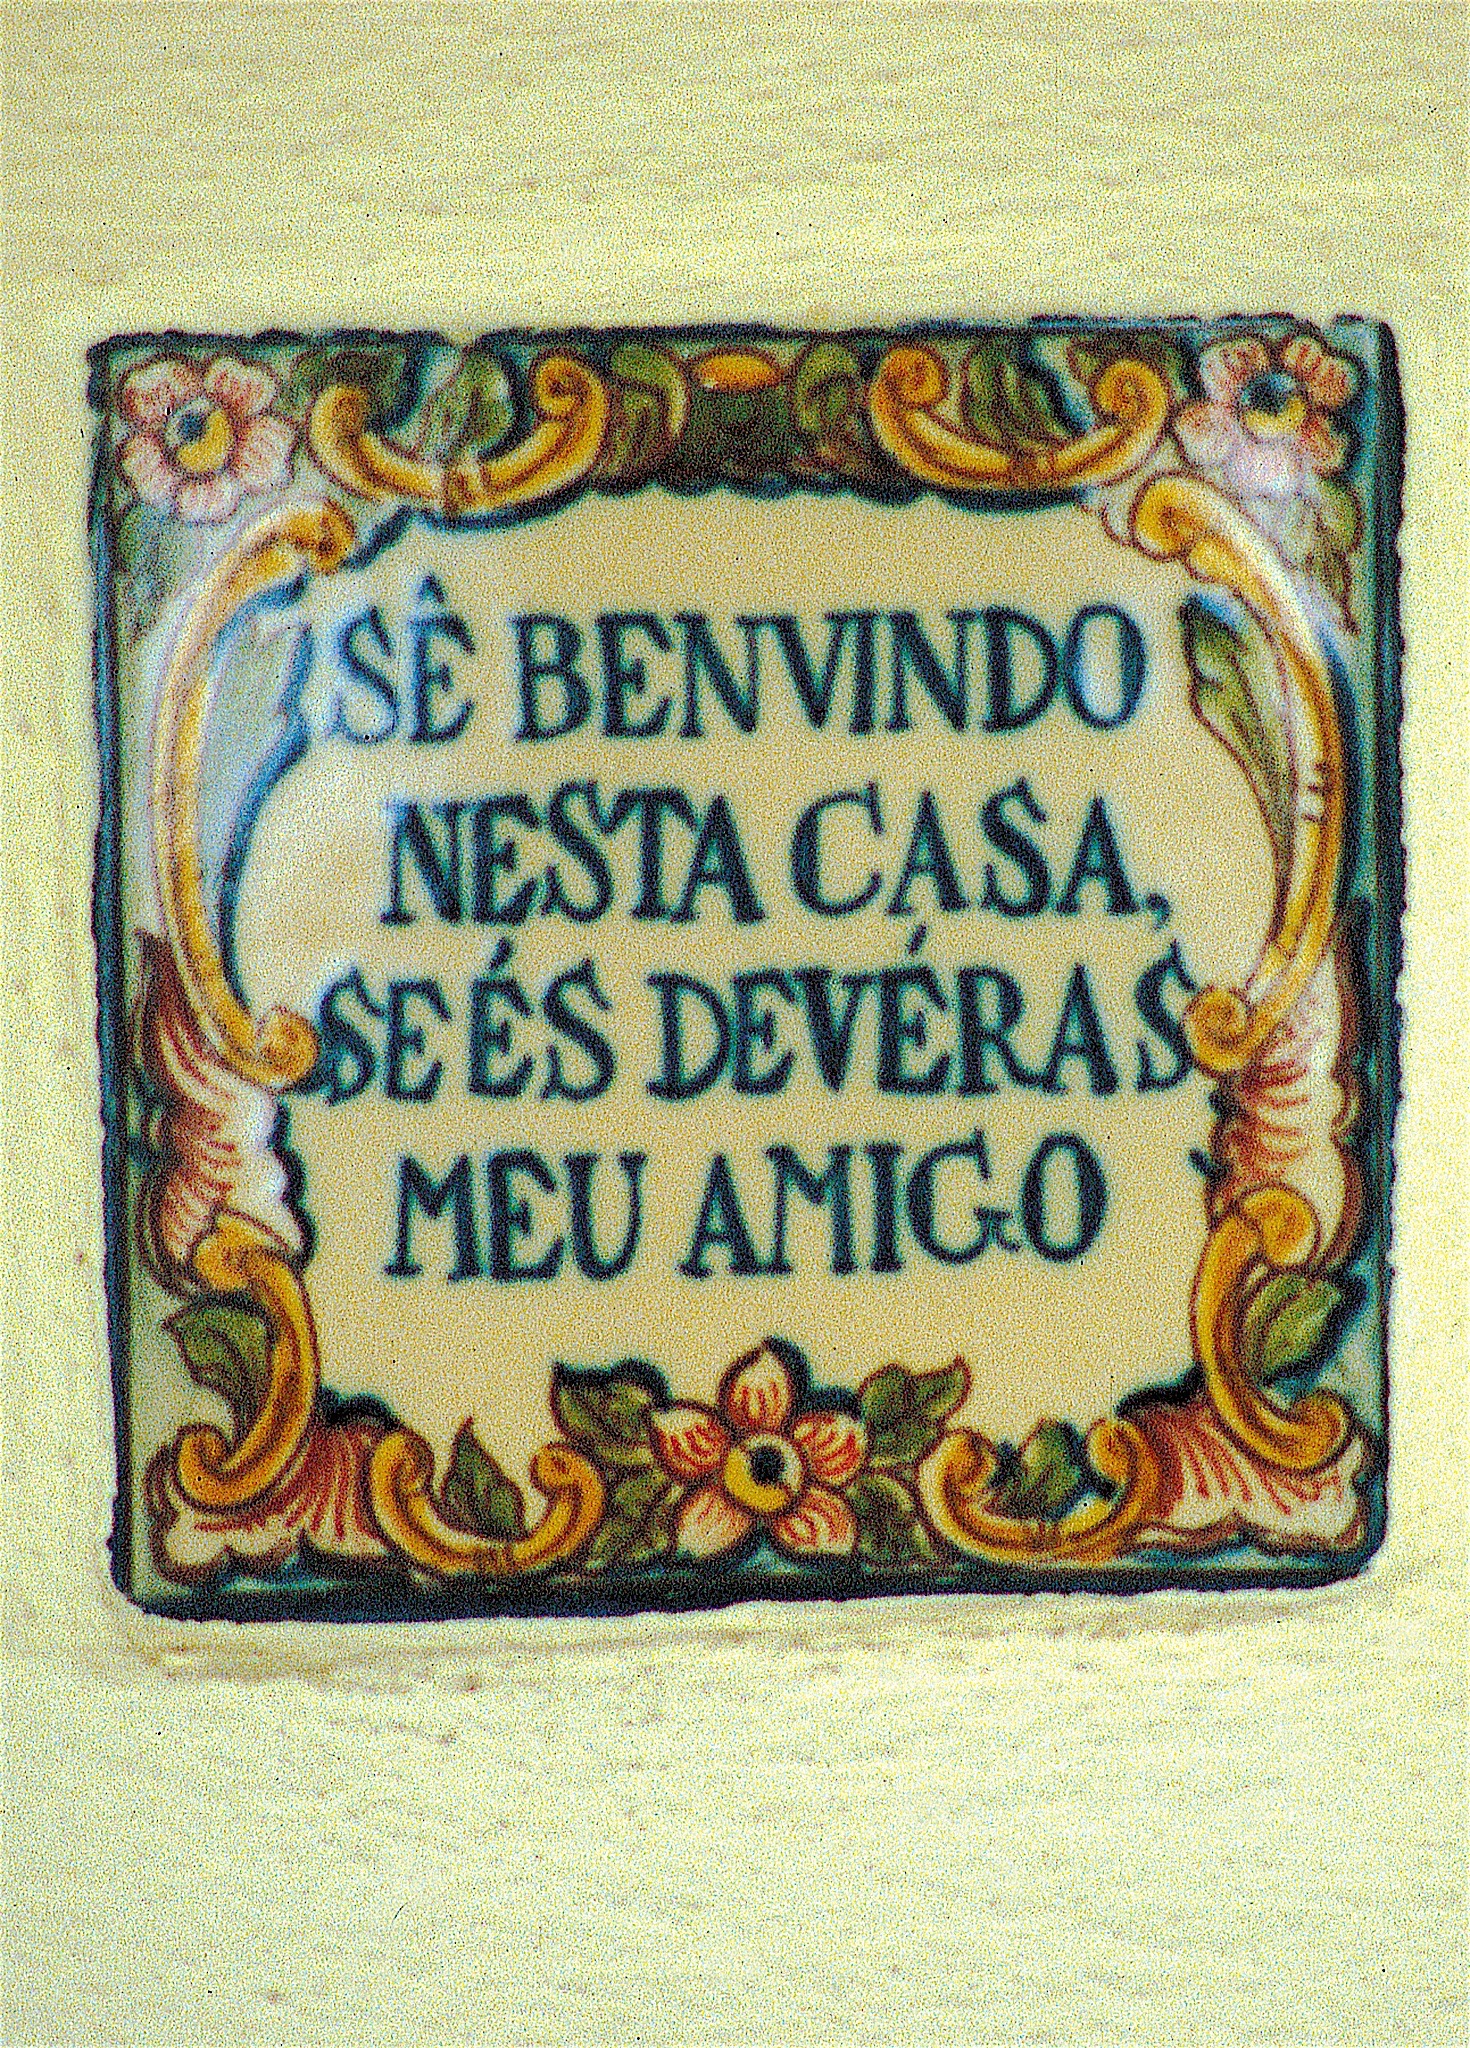 SÊ BENVINDO
NESTA CASA,
SE ÉS DEVÉRAS
MEU AMIGO